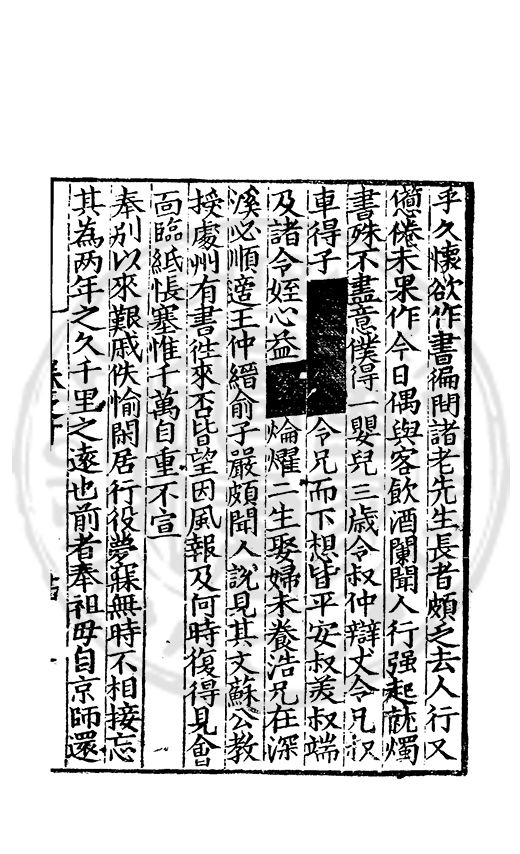 乎久懷欲作書徧問諸老先生長者頗乏去人行又
憊倦未果作今日偶與客飲酒闌聞人行强起就燭
書殊不盡意僕得一嬰兒三歲令叔仲辯丈令兄叔
車得子令兄而下想皆平安叔羙叔端
及諸令姪心益㷍燿二生娶婦未養浩兄在深
溪必順適王仲縉俞子嚴頗聞人說見其文蘇公教
授處州有書徃來否皆望因風報及何時復得見會
靣臨紙悵塞惟千萬自重不宣
奉別以來艱戚佚愉閑居行役夢寐無時不相接忘
其為两年之久千里之遠也前者奉祖母自京師還